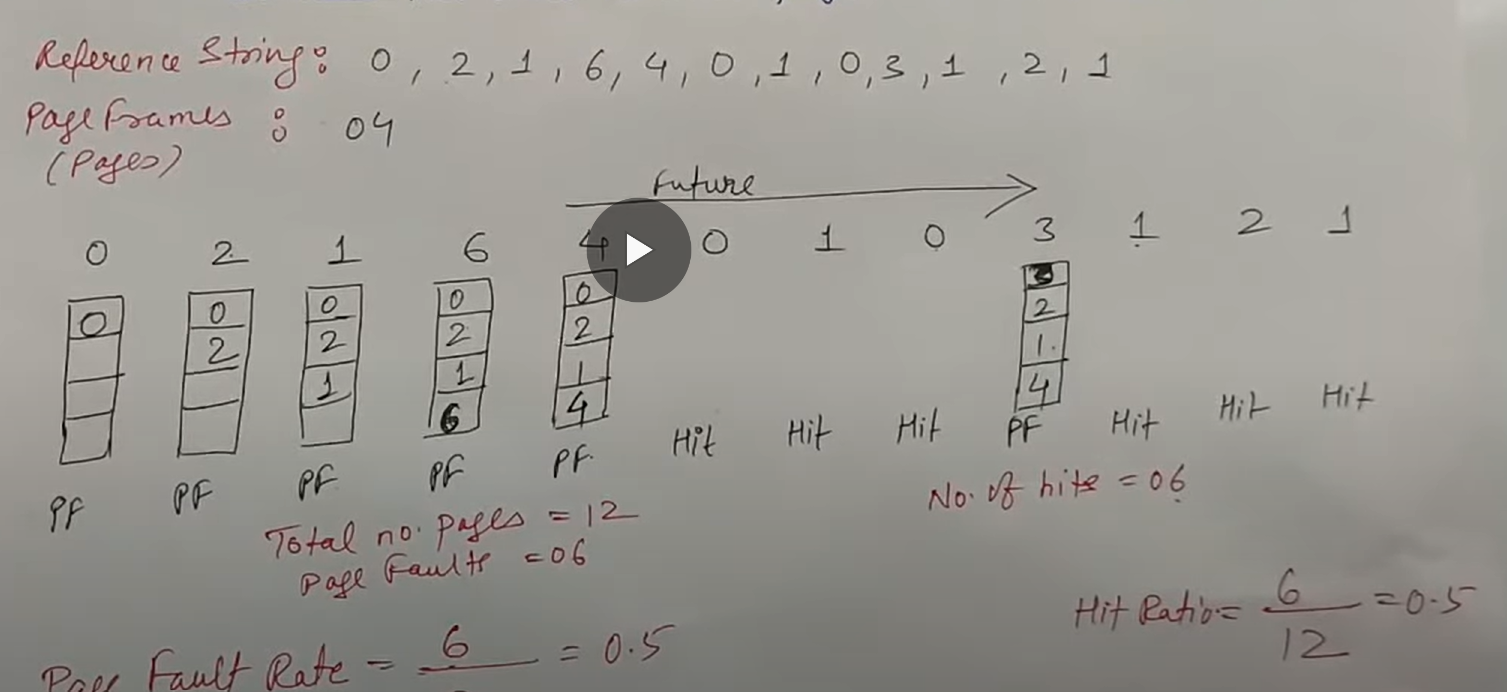 Reference String: 0, 2, 1, 6, 4, 0, 1, 0, 3, 1, 2, 1
Page Frames : 04
(Pages)
Future
0 2 1 6 4 0 1 0 3 1 2 1
0 0 0 0 0 3
2 2 2 2 2
1 1 1 1
6 4 4
PF PF PF PF PF Hit Hit Hit PF Hit Hit Hit
Total no. pages = 12
Page Faults = 06
No. of hits = 06
Hit Ratio = 6/12 = 0.5
Page Fault Rate = 6 = 0.5